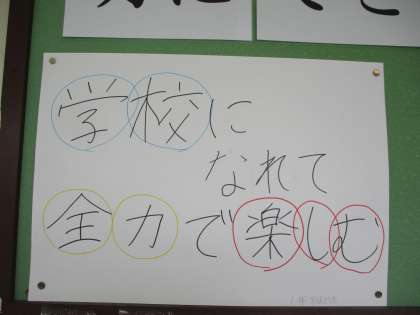 学校に
なれて
全力で楽しむ